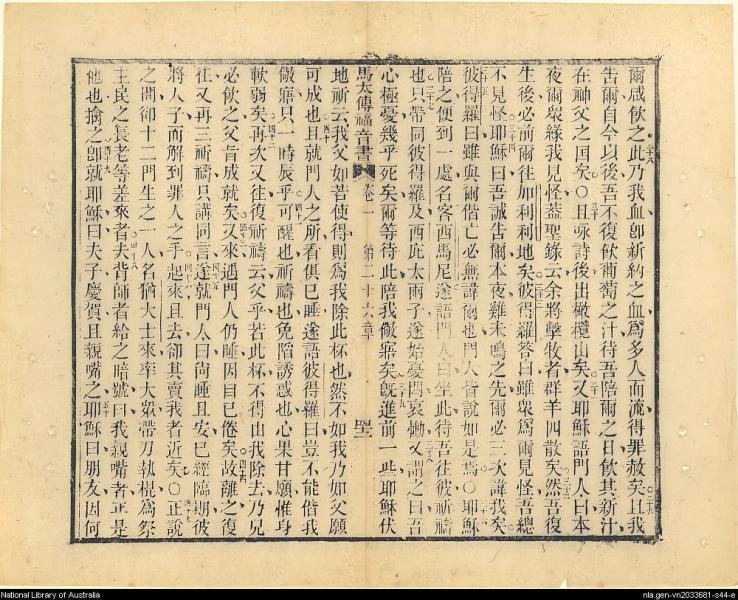 爾咸飲之此乃我血卽新約之血爲多人而流得罪赦矣且我
吿爾自今以後吾不復飲葡萄之汁待吾陪爾之日飲其新汁
在神父之国矣○且咏詩後出橄欖山矣又耶穌語門人曰本
夜爾衆緣我見怪蓋聖錄云余將擊牧者群羊四散矣然吾復
生後必前爾往加利利地矣彼得羅答曰雖衆爲爾見怪吾總
不見怪耶穌曰吾誠吿爾本夜雞未鳴之先爾必三次諱我矣
彼得羅曰雖與爾偕亡必無諱爾也門人皆說如是焉○耶穌
陪之便到一處名客西馬尼遂語門人曰坐此待吾往彼祈禱
也只帶同彼得羅及西庇太兩子遂始憂悶哀慟又謂之曰吾
心極憂幾乎死矣爾等待此陪我儆寤矣旣進前一些耶穌伏
馬太傳福音書 卷一 第二十六章
地祈云我父如若使得則爲我除此杯也然不如我乃如父願
可成也且就門人之所看俱已睡遂語彼得羅曰豈不能偕我
儆寤只一時辰乎可醒也祈禱也免陷誘惑也心果甘願惟身
軟弱矣再次又往復祈禱云父乎若此杯不得由我除去乃見
必飲之父旨成就矣又來遇門人仍睡因目已倦矣故離之復
往又再三祈禱只講同言遂就門人曰尚睡且安已經臨期彼
將人子而解到罪人之手起來且去卻其賣我者近矣○正說
之間卻十二門生之一人名猶大士來率大衆帶刀執棍爲祭
主民之長老等差來者夫背師者給之暗號曰我親嘴者正是
他也擒之卽就耶穌曰夫子慶賀且親嘴之耶穌曰朋友因何
National Library of Australia
nla.gen-vn2033681-s44-e